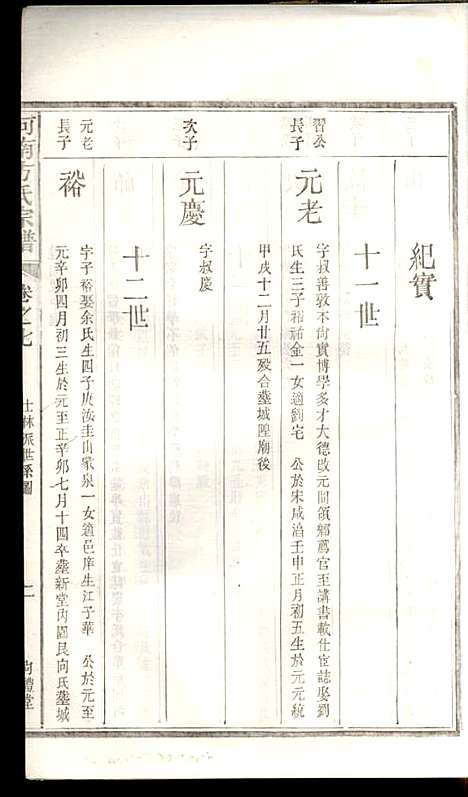 紀實
十一世
習公長子
元老
字叔善敦本尚實博學多才大德改元間領鄉薦官至講書載仕宦誌娶劉
氏生三子裕祐金一女適劉宅 公於宋咸淳壬申正月初五生於元元統
甲戌十二月廿五歿合塟城隍廟後
次子
元慶
字叔慶
十二世
元老長子
裕
字子裕娶余氏生四子庚汝圭山蒙泉一女適邑庠生江子華 公於元至
元辛卯四月初三生於元至正辛卯七月十四卒塟新堂內園艮向氏塟城
河南方氏宗譜
卷之七
士林派世系圖
二